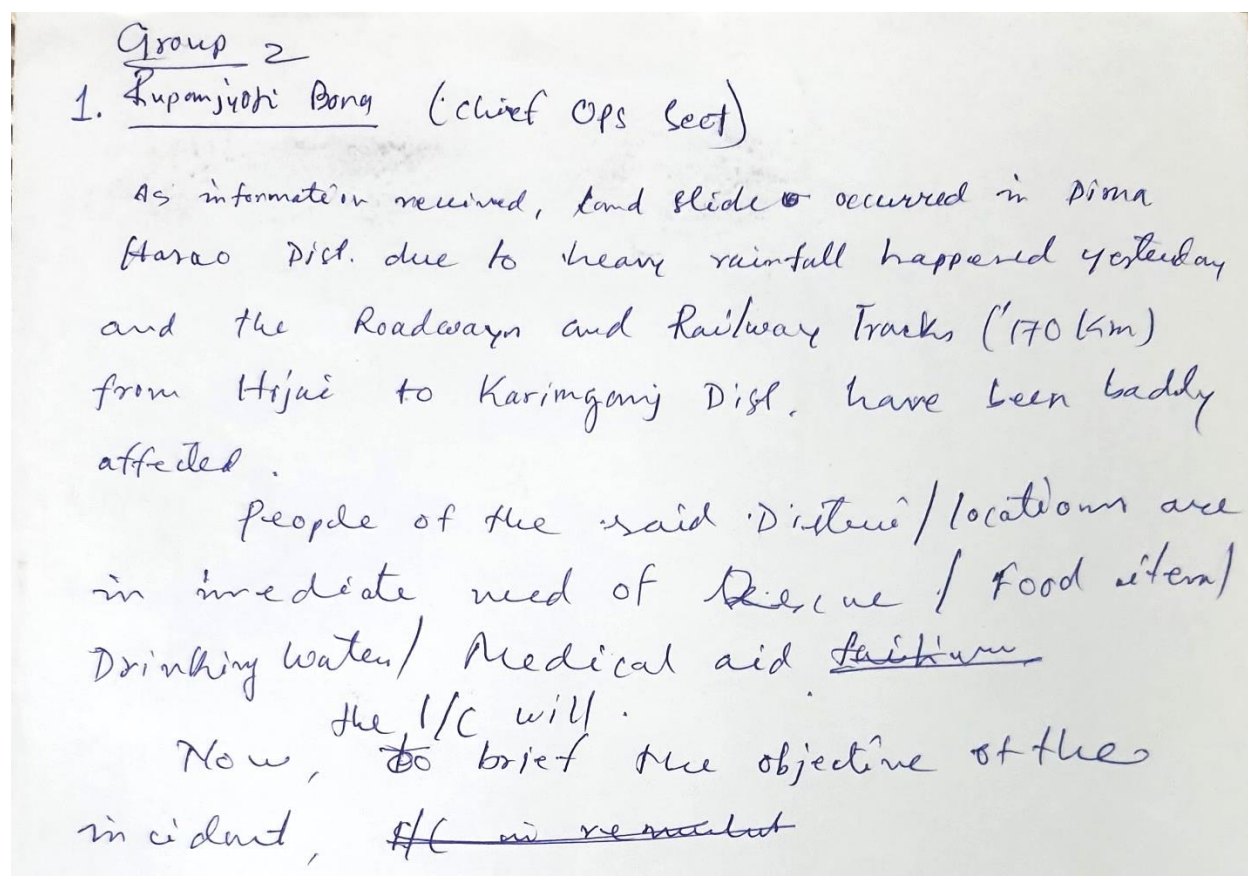 Group 2
1. Rupamjyoti Bora (chief Ops Sect)
As information received, Land slide occurred in Dima
Hasao Dist. due to heavy rainfall happened yesterday
and the Roadways and Railway Tracks (170 Km)
from Hojai to Karimganj Dist. have been baddly
affected.
People of the said District/locations are
in imediate need of Rescue / Food item/
Drinking Water/ Medical aid
the I/C will
Now, to brief the objective of the
incident, I/C